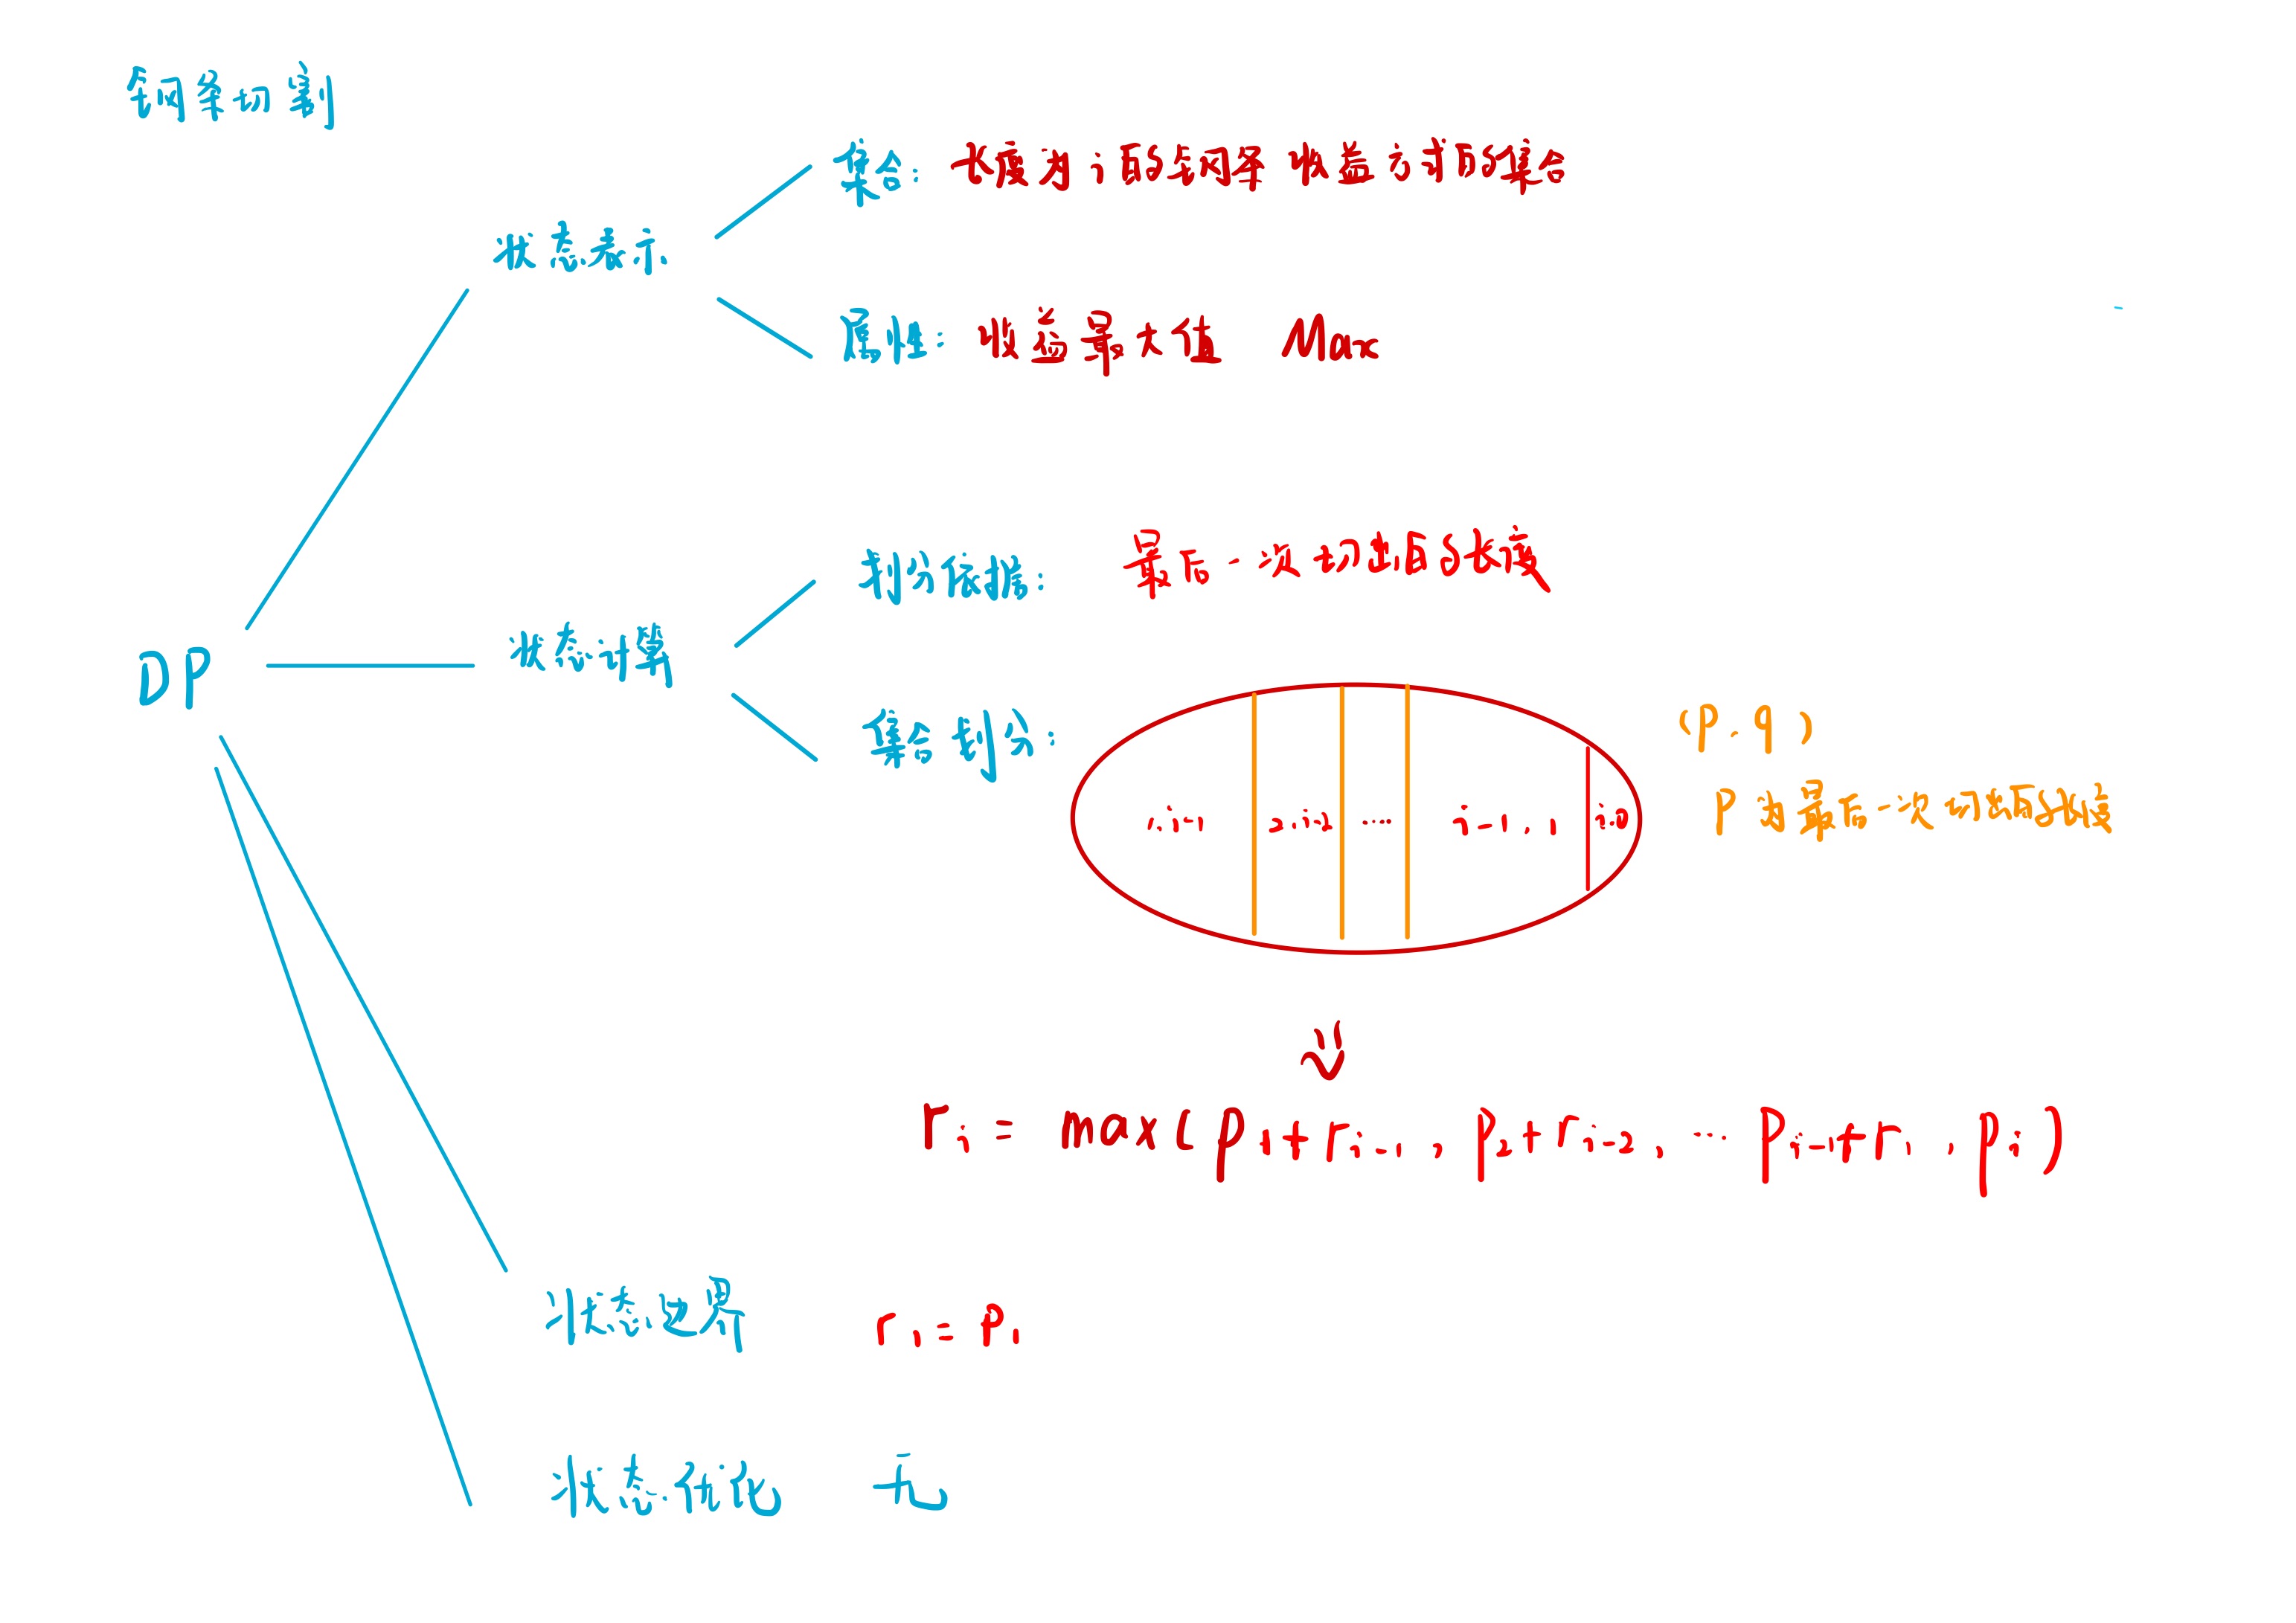 钢条切割
集合: 长度为i的钢条收益的集合
状态表示
属性: 收益最大值 Max
划分依据: 最后一次切出的长度
DP
状态计算
集合划分:
1,i-1 2,i-2 .... i-1,1 i,0
(P,q)
P为最后一次切出的长度
ri = max(p1+ri-1, p2+ri-2, ... pi-1+r1, pi)
状态边界 r1=P1
状态优化 无